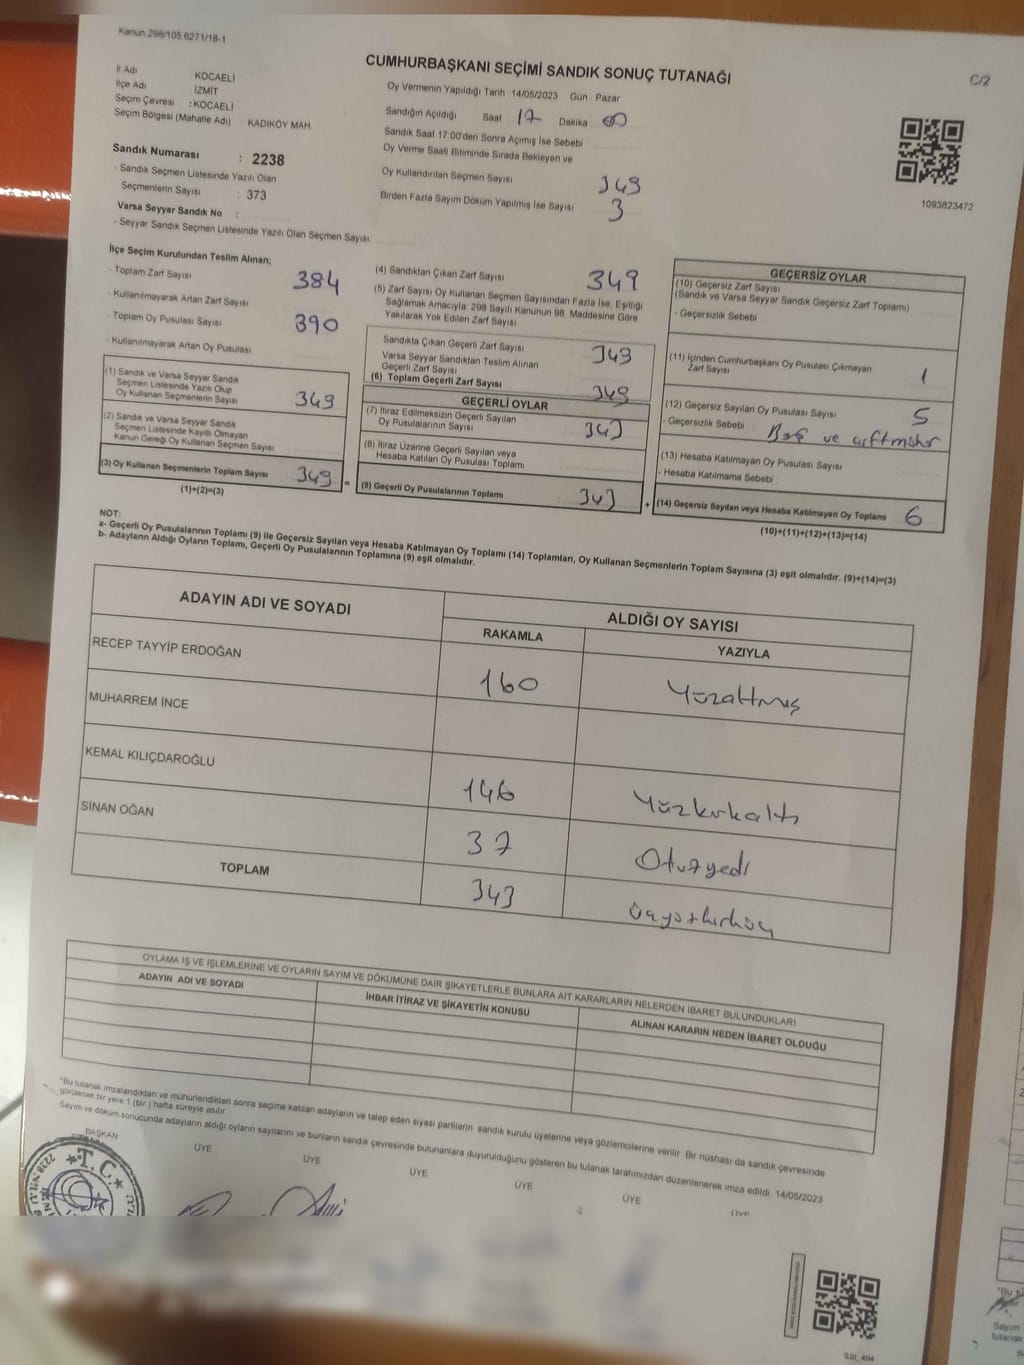 Kanun.298/105.6271/18-1
CUMHURBAŞKANI SEÇİMİ SANDIK SONUÇ TUTANAĞI
C/2
İl Adı KOCAELİ
İlçe Adı İZMİT
Seçim Çevresi : KOCAELİ
Seçim Bölgesi (Mahalle Adı) : KADIKÖY MAH.
Oy Vermenin Yapıldığı Tarih 14/05/2023 Gün : Pazar
Sandığın Açıldığı Saat 17 Dakika 00
Sandık Saat 17:00'den Sonra Açımış İse Sebebi
Oy Verme Saati Bitiminde Sırada Bekleyen ve
Oy Kullandırılan Seçmen Sayısı 349
Birden Fazla Sayım Döküm Yapılmış İse Sayısı 3
1093823472
Sandık Numarası : 2238
- Sandık Seçmen Listesinde Yazılı Olan
Seçmenlerin Sayısı : 373
Varsa Seyyar Sandık No :
- Seyyar Sandık Seçmen Listesinde Yazılı Olan Seçmen Sayısı:
İlçe Seçim Kurulundan Teslim Alınan;
- Toplam Zarf Sayısı 384
- Kullanılmayarak Artan Zarf Sayısı
- Toplam Oy Pusulası Sayısı 390
- Kullanılmayarak Artan Oy Pusulası
(1) Sandık ve Varsa Seyyar Sandık
Seçmen Listesinde Yazılı Olup
Oy Kullanan Seçmenlerin Sayısı 349
(2) Sandık ve Varsa Seyyar Sandık
Seçmen Listesinde Kayıtlı Olmayan
Kanun Gereği Oy Kullanan Seçmen Sayısı
(3) Oy Kullanan Seçmenlerin Toplam Sayısı 349 =
(1)+(2)=(3)
(4) Sandıktan Çıkan Zarf Sayısı 349
(5) Zarf Sayısı Oy Kullanan Seçmen Sayısından Fazla İse, Eşitliği
Sağlamak Amacıyla; 298 Sayılı Kanunun 98. Maddesine Göre
Yakılarak Yok Edilen Zarf Sayısı
Sandıkta Çıkan Geçerli Zarf Sayısı 349
Varsa Seyyar Sandıktan Teslim Alınan
Geçerli Zarf Sayısı
(6) Toplam Geçerli Zarf Sayısı 349
GEÇERLİ OYLAR
(7) İtiraz Edilmeksizin Geçerli Sayılan
Oy Pusulalarının Sayısı 343
(8) İtiraz Üzerine Geçerli Sayılan veya
Hesaba Katılan Oy Pusulası Toplamı
(9) Geçerli Oy Pusulalarının Toplamı 343 +
GEÇERSİZ OYLAR
(10) Geçersiz Zarf Sayısı
(Sandık ve Varsa Seyyar Sandık Geçersiz Zarf Toplamı)
- Geçersizlik Sebebi
(11) İçinden Cumhurbaşkanı Oy Pusulası Çıkmayan
Zarf Sayısı 1
(12) Geçersiz Sayılan Oy Pusulası Sayısı 5
- Geçersizlik Sebebi : Boş ve çift mühür
(13) Hesaba Katılmayan Oy Pusulası Sayısı
- Hesaba Katılmama Sebebi :
(14) Geçersiz Sayılan veya Hesaba Katılmayan Oy Toplamı 6
(10)+(11)+(12)+(13)=(14)
NOT:
a- Geçerli Oy Pusulalarının Toplamı (9) ile Geçersiz Sayılan veya Hesaba Katılmayan Oy Toplamı (14) Toplamları, Oy Kullanan Seçmenlerin Toplam Sayısına (3) eşit olmalıdır. (9)+(14)=(3)
b- Adayların Aldığı Oyların Toplamı, Geçerli Oy Pusulalarının Toplamına (9) eşit olmalıdır.
ADAYIN ADI VE SOYADI
ALDIĞI OY SAYISI
RAKAMLA YAZIYLA
RECEP TAYYİP ERDOĞAN 160 Yüzaltmış
MUHARREM İNCE
KEMAL KILIÇDAROĞLU 146 Yüzkırkaltı
SİNAN OĞAN 37 Otuzyedi
TOPLAM 343 üçyüzkırküç
OYLAMA İŞ VE İŞLEMLERİNE VE OYLARIN SAYIM VE DÖKÜMÜNE DAİR ŞİKAYETLERLE BUNLARA AİT KARARLARIN NELERDEN İBARET BULUNDUKLARI
ADAYIN ADI VE SOYADI
İHBAR İTİRAZ VE ŞİKAYETİN KONUSU
ALINAN KARARIN NEDEN İBARET OLDUĞU
*Bu tutanak imzalandıktan ve mühürlendikten sonra seçime katılan adayların ve talep eden siyasi partilerin sandık kurulu üyelerine veya gözlemcilerine verilir. Bir nüshası da sandık çevresinde
görülecek bir yere 1 (bir) hafta süreyle asılır
Sayım ve döküm sonucunda adayların aldığı oyların sayılarını ve bunların sandık çevresinde bulunanlara duyurulduğunu gösteren bu tutanak tarafımızdan düzenlenerek imza edildi. 14/05/2023
BAŞKAN ÜYE ÜYE ÜYE ÜYE ÜYE ÜYE
T.C.